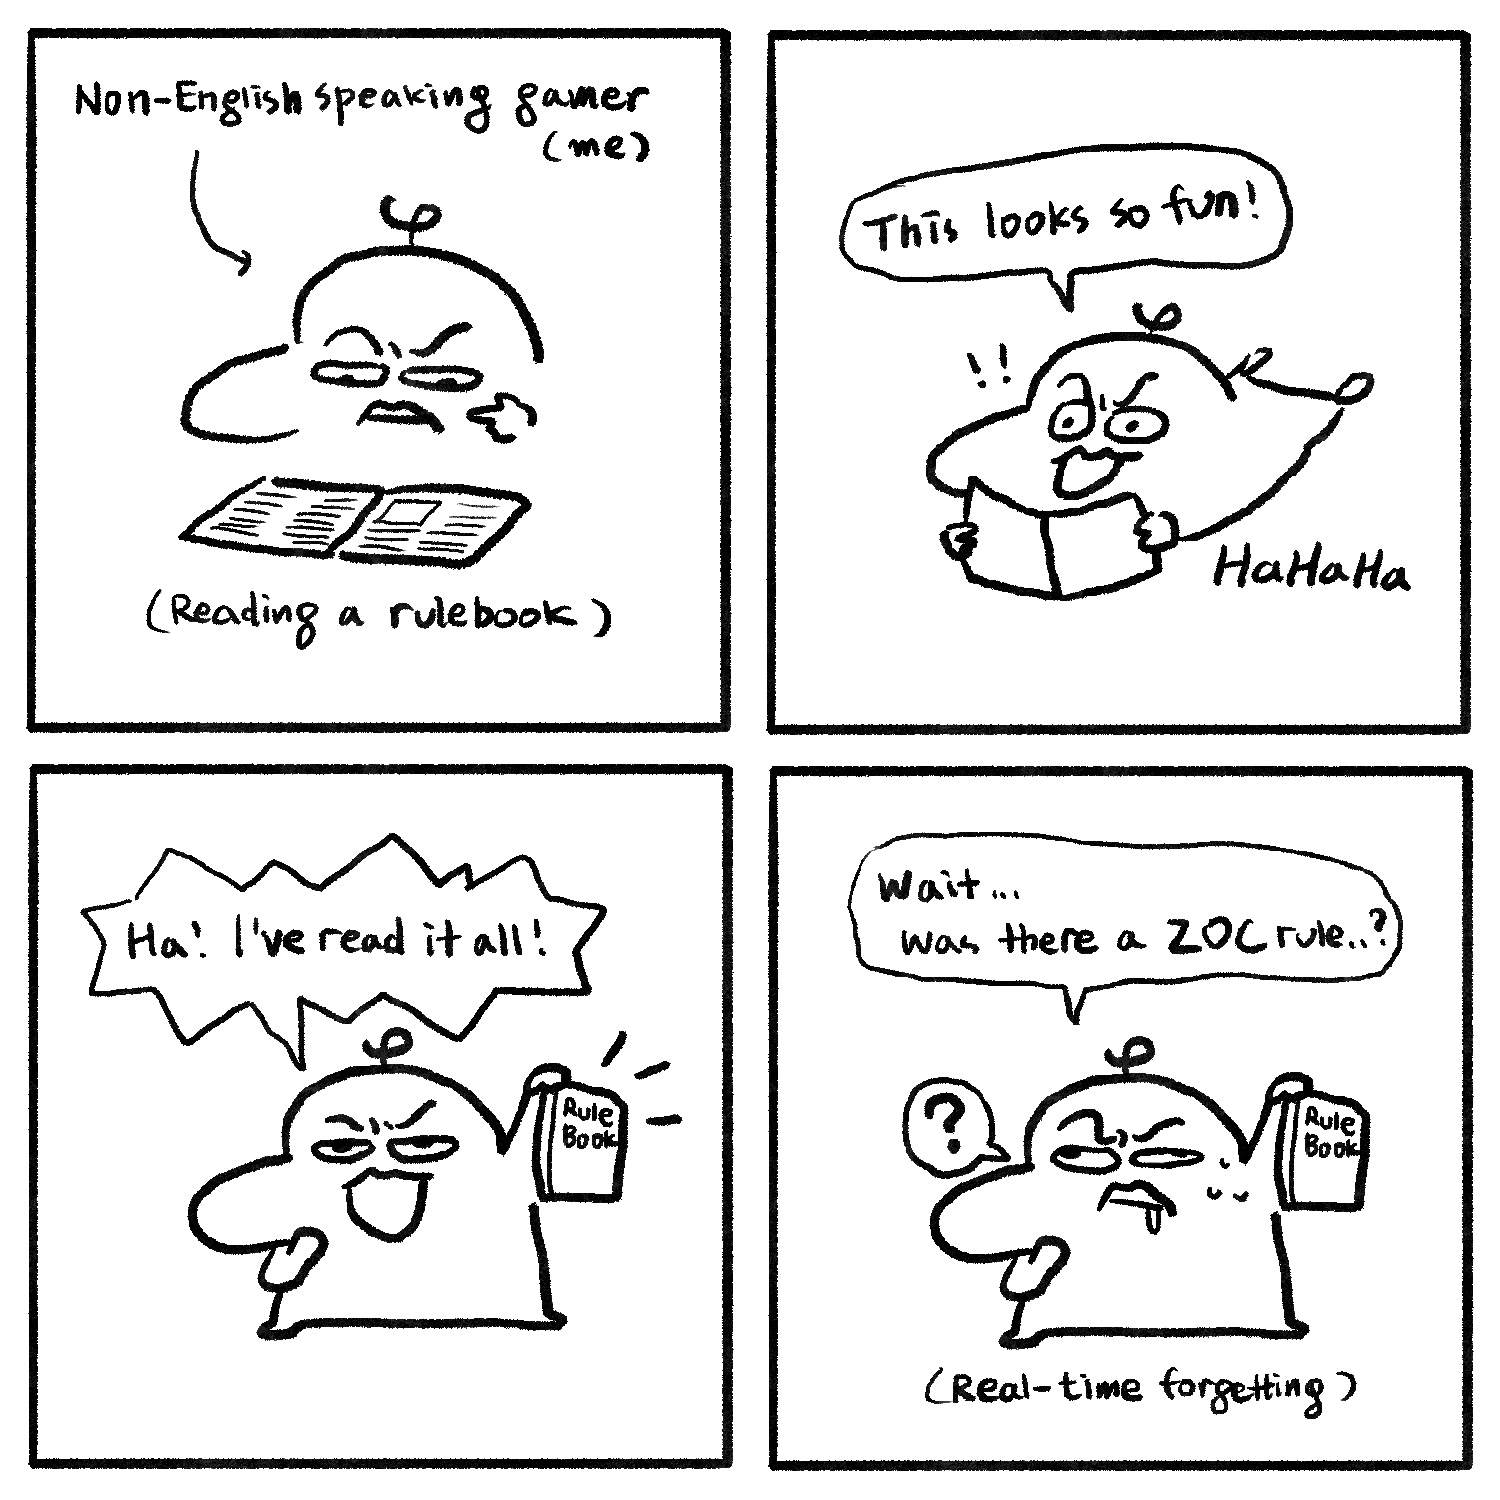 Non-English speaking gamer
(me)
(Reading a rulebook)
This looks so fun!
!!
HaHaHa
Ha! I've read it all!
Rule
Book
Wait...
was there a ZOC rule..?
?
Rule
Book
(Real-time forgetting)